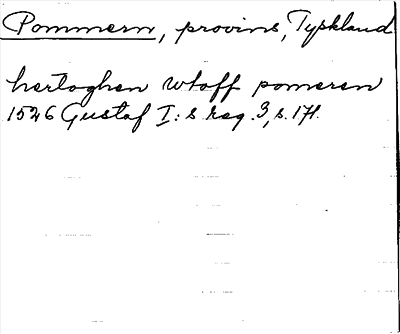 Pommern, provins, Tyskland
hertoghen wtoff pomeren
1526 Gustaf I:s reg. 3, s. 171.